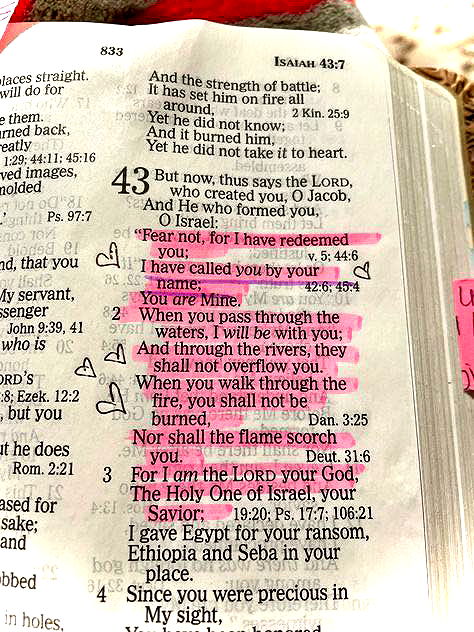 833
ISAIAH 43:7
places straight.
will do for
e them.
rned back,
reatly
1:29; 44:11; 45:16
ved images,
molded
Ps. 97:7
nd, that you
My servant,
ssenger
John 9:39, 41
who is
ORD'S
:8; Ezek. 12:2
, but you
ut he does
Rom. 2:21
ased for
sake;
and
obbed
in holes,
And the strength of battle;
It has set him on fire all
around, 2 Kin. 25:9
Yet he did not know;
And it burned him,
Yet he did not take it to heart.
43 But now, thus says the LORD,
who created you, O Jacob,
And He who formed you,
O Israel:
"Fear not, for I have redeemed
you; v. 5; 44:6
I have called you by your
name; 42:6; 45:4
You are Mine.
2 When you pass through the
waters, I will be with you;
And through the rivers, they
shall not overflow you.
When you walk through the
fire, you shall not be
burned, Dan. 3:25
Nor shall the flame scorch
you. Deut. 31:6
3 For I am the LORD your God,
The Holy One of Israel, your
Savior; 19:20; Ps. 17:7; 106:21
I gave Egypt for your ransom,
Ethiopia and Seba in your
place.
4 Since you were precious in
My sight,
You have been honored